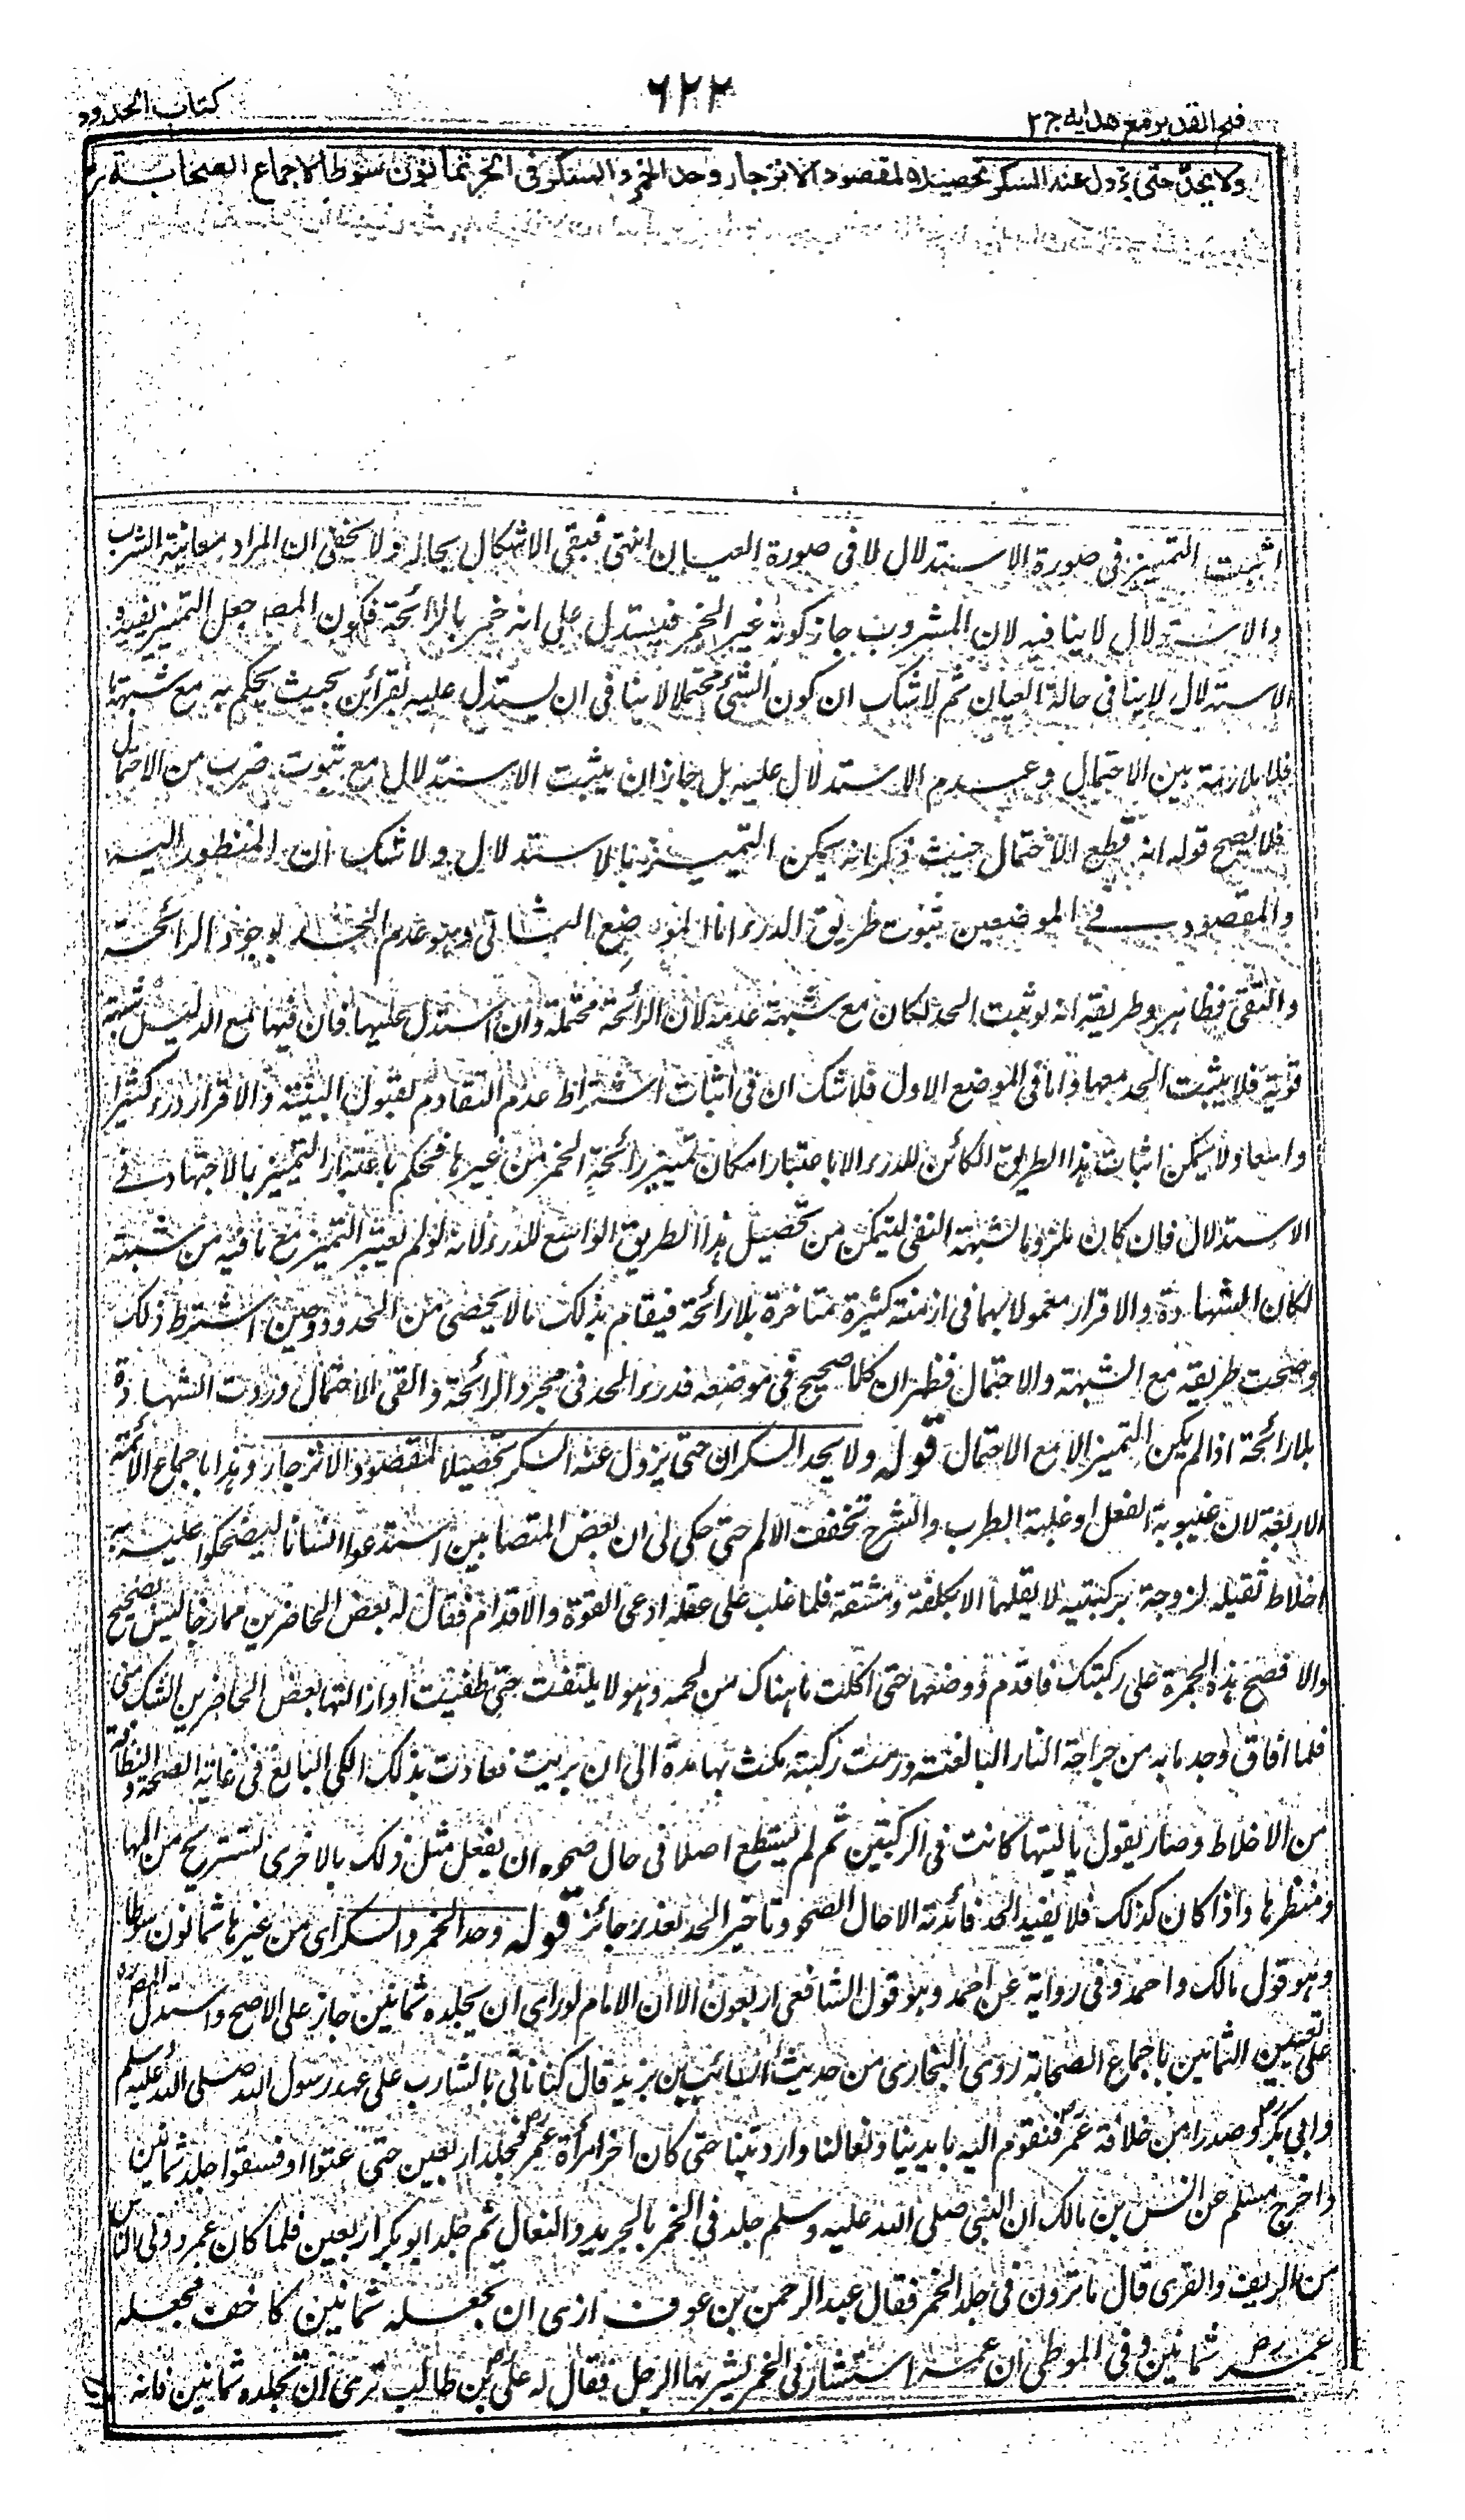 كتاب الحدود
٦٢٢
فتح القدير مع هدايه ج ٢
ولا يحد حتى يزول عنه السكر تحصيلا لمقصود الانزجار وحد الخمر والسكر في الحر ثمانون سوطا لاجماع الصحابة رض
اثبت التمييز في صورة الاستدلال لا في صورة العيان انتهى فبقي الاشكال بحاله ولا يخفى ان المراد معاينة الشرب
والاستدلال لا ينافيه لان المشروب جاز كونه غير الخمر فيستدل على انه خمر بالرائحة فكون المصـ جعل التمييز يفيده
الاستدلال لا ينافي حالة العيان ثم لا شك ان كون الشئ محتملا لا ينافي ان يستدل عليه بقرائن بحيث يحكم به مع شبهة ما
فلا ملازمة بين الاحتمال وعدم الاستدلال عليه بل جاز ان يثبت الاستدلال مع ثبوت ضرب من الاحتمال
فلا يصح قوله انه قطع الاحتمال حيث ذكر انه يمكن التمييز بالاستدلال ولا شك ان المنظور اليه
والمقصود في الموضعين ثبوت طريق الدرء اما الموضع الثاني وهو عدم الحد بوجود الرائحة
والتقئ فظاهر وطريقه انه لو ثبت الحد لكان مع شبهة عدمه لان الرائحة محتملة وان استدل عليها فان فيها مع الدليل شبهة
قوية فلا يثبت الحد معها واما في الموضع الاول فلا شك ان في اثبات اشتراط عدم التقادم لقبول البينة والاقرار درء كثيرا
واسعا ولا يمكن اثبات هذا الطريق الكائن للدرء الا باعتبار امكان تمييز رائحة الخمر من غيرها فحكم باعتبار التمييز بالاجتهاد في
الاستدلال فان كان ملزوما لشبهة النفي ليتمكن من تحصيل هذا الطريق الواسع للدرء لانه لو لم يعتبر التمييز مع ما فيه من شبهة
لكان الشهادة والاقرار معمولا بهما في ازمنة كثيرة متاخرة بلا رائحة فيقام بذلك ما لا يحصى من الحدود وحين اشترط ذلك
وضحت طريقه مع الشبهة والاحتمال فظهر ان كلا صحيح في موضعه فدرء الحد في مجرد الرائحة والقئ الاحتمال وردت الشهادة
بلا رائحة اذا لم يكن التمييز الا مع الاحتمال قوله ولا يحد السكران حتى يزول عنه السكر تحصيلا لمقصود الانزجار وهذا باجماع الائمة
الاربعة لان غيبوبة العقل او غلبة الطرب والشرح تخفف الالم حتى حكى لي ان بعض المتصابين استدعوا انسانا ليضحكوا عليه به
اخلاط ثقيله لزوجة بركبتيه لا يقلهما الا بكلفة ومشقة فلما غلب على عقله ادعى القوة والاقدام فقال له بعض الحاضرين ممازحا ليس بصحيح
والا فضع هذه الجمرة على ركبتك فاقدم ووضعها حتى اكلت ما هناك من لحمه وهو لا يلتفت حتى طفيت او ازالتها بعض الحاضرين الشك مني
فلما افاق وجد ما به من جراحة النار البالغة ورمت ركبته مكث بها مدة الى ان بريت فعادت بذلك الكي البالغ في غاية الصحة والنظافة
من الاخلاط وصار يقول يا ليتها كانت في الركبتين ثم لم يستطع اصلا في حال صحوه ان يفعل مثل ذلك بالاخرى لتستريح من المها
ومنظرها واذا كان كذلك فلا يفيد الحد فائدته الا حال الصحو وتاخير الحد لعذر جائز قوله وحد الخمر والسكر اي من غيرها ثمانون سوطا
وهو قول مالك واحمد وفي رواية عن احمد وهو قول الشافعي اربعون الا ان الامام لو راى ان يجلده ثمانين جاز على الاصح واستدل المصـ ره
على تعيين الثمانين باجماع الصحابة روى البخاري من حديث السائب بن يزيد قال كنا ناتي بالشارب على عهد رسول الله صلى الله عليه وسلم
وابي بكر رض وصدرا من خلافة عمر رض فنقوم اليه بايدينا ونعالنا وارديتنا حتى كان اخر امرأة عمر رض فجلد اربعين حتى عتوا وفسقوا جلد ثمانين
واخرج مسلم عن انس بن مالك ان النبي صلى الله عليه وسلم جلد في الخمر بالجريد والنعال ثم جلد ابو بكر اربعين فلما كان عمر ودنى الناس
من الريف والقرى قال ما ترون في جلد الخمر فقال عبد الرحمن بن عوف ارى ان تجعله ثمانين كاخف فجعله
عمر رض ثمانين وفي الموطى ان عمر استشار في الخمر يشربها الرجل فقال له علي بن طالب نرى ان تجلده ثمانين فانه